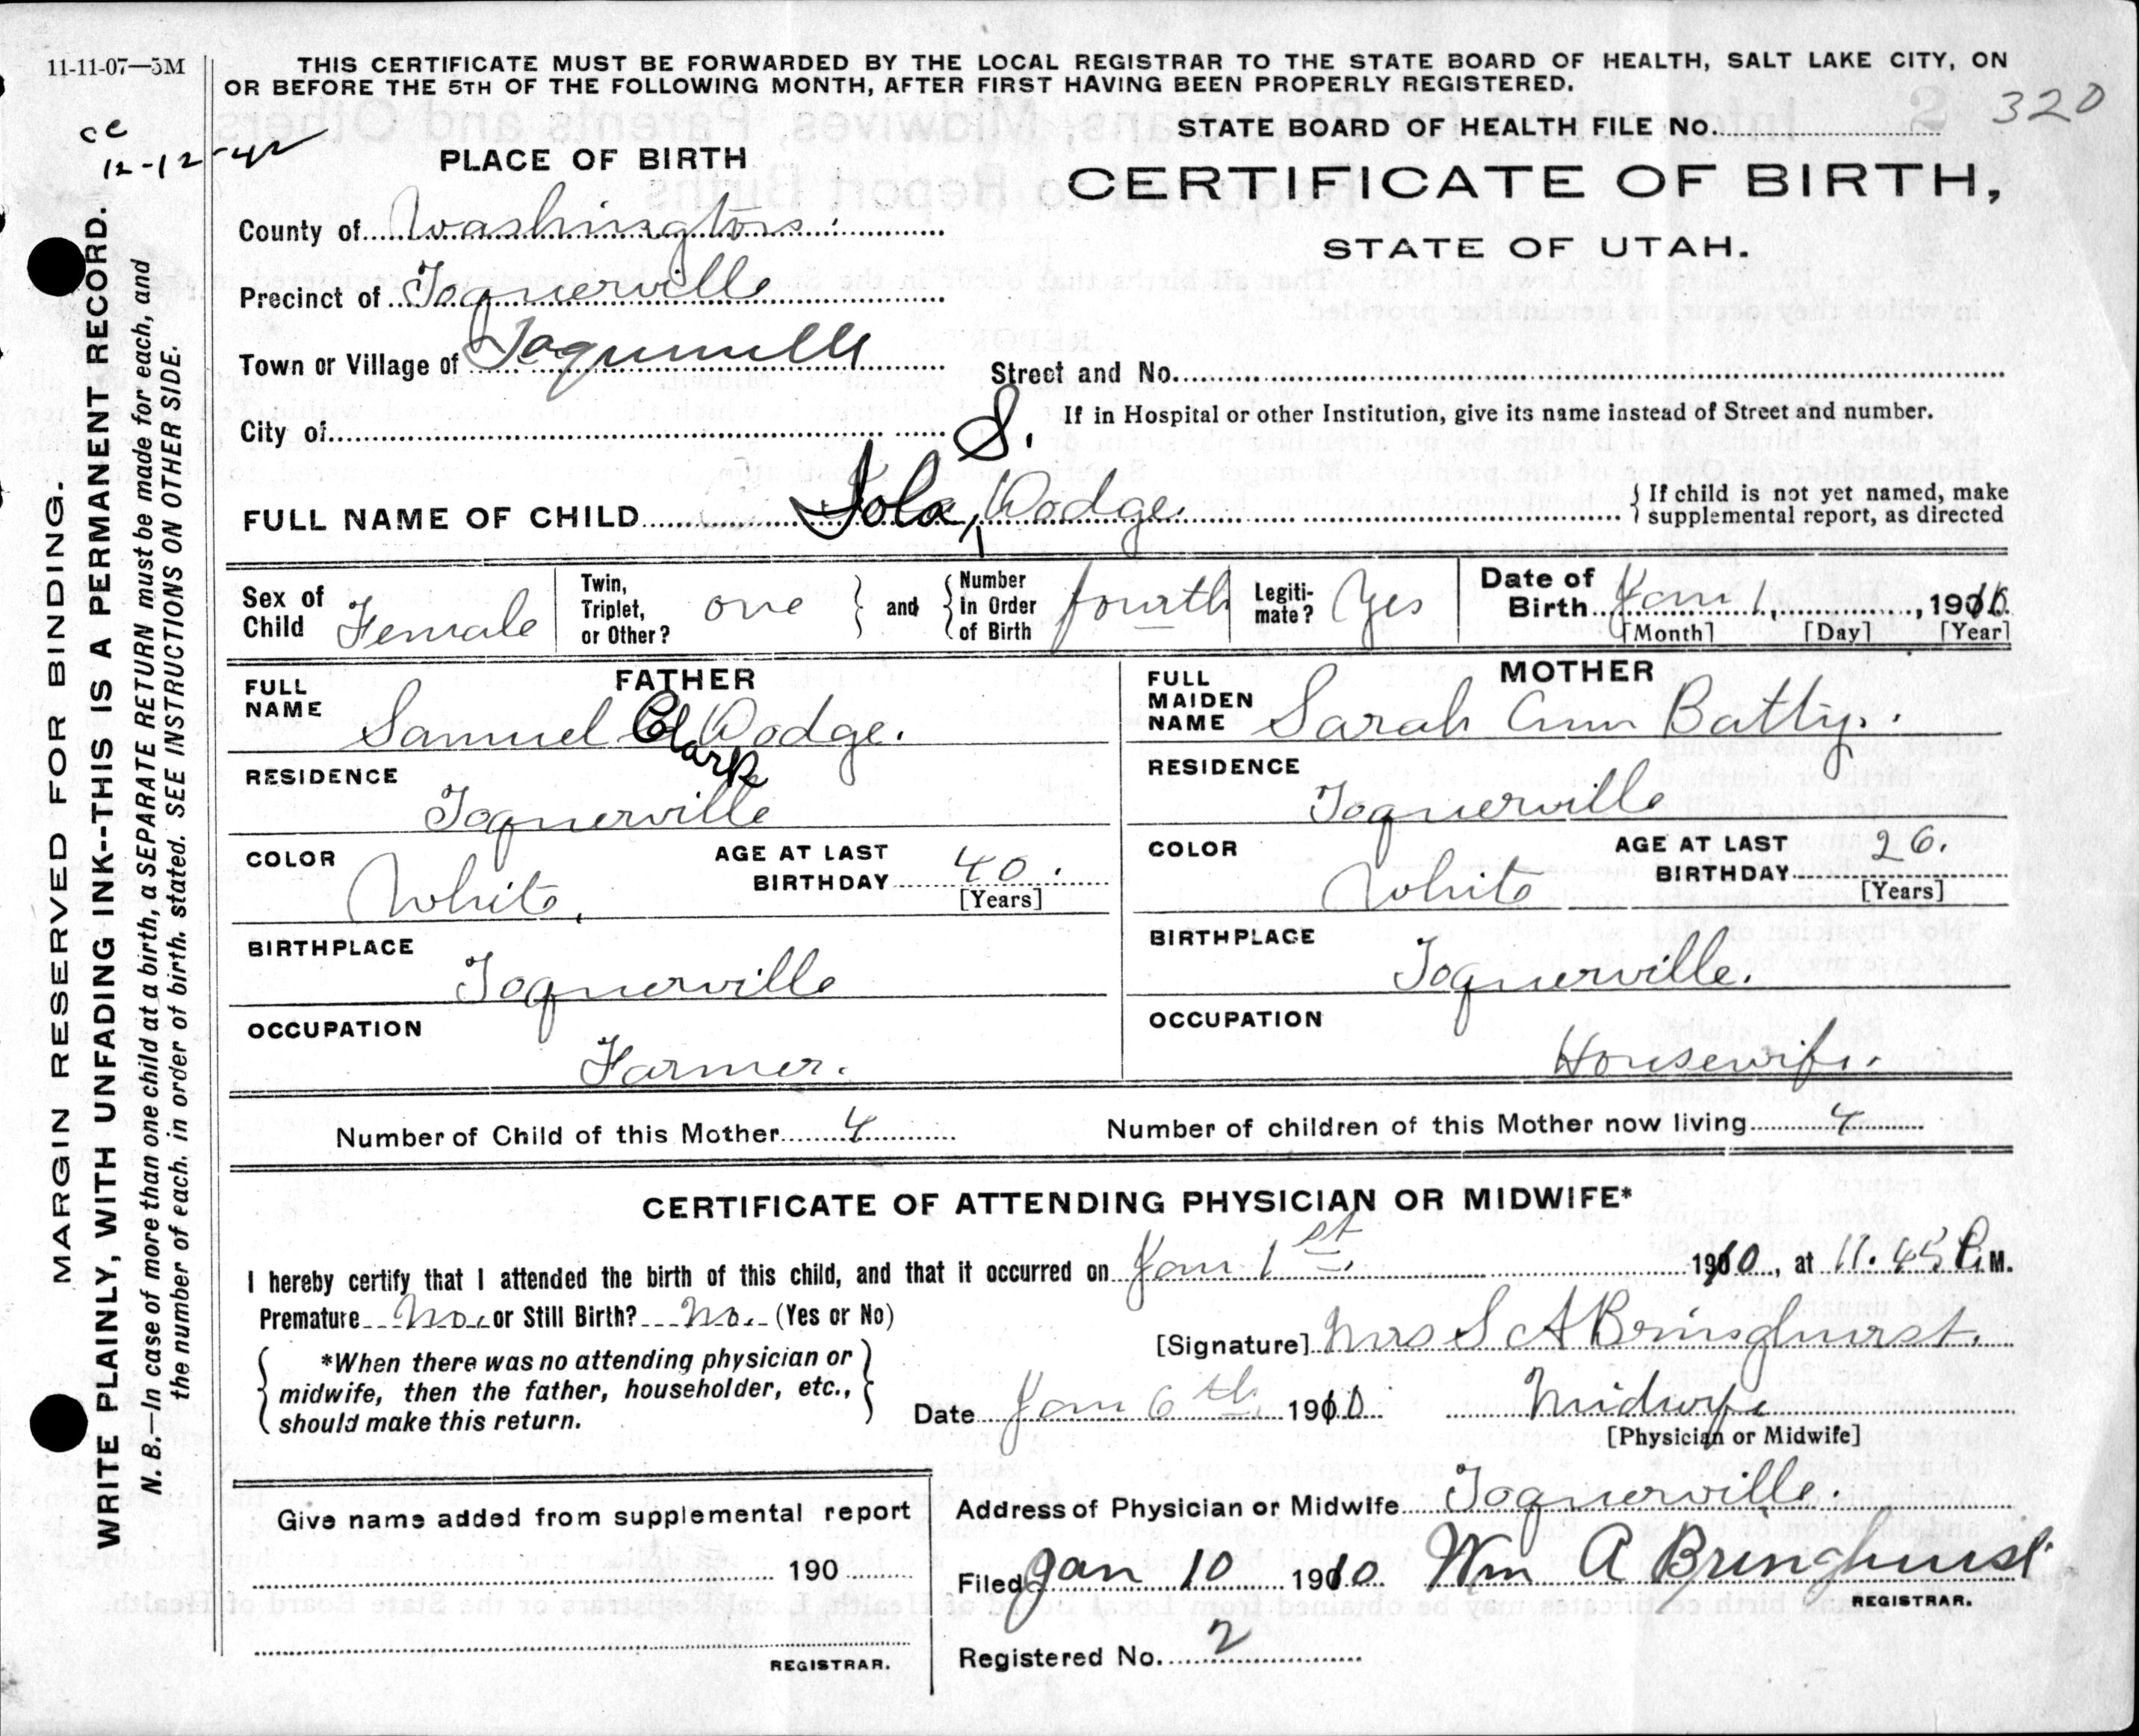 11-11-07—5M
THIS CERTIFICATE MUST BE FORWARDED BY THE LOCAL REGISTRAR TO THE STATE BOARD OF HEALTH, SALT LAKE CITY, ON
OR BEFORE THE 5TH OF THE FOLLOWING MONTH, AFTER FIRST HAVING BEEN PROPERLY REGISTERED.
320
STATE BOARD OF HEALTH FILE No.
cc
12-12-42
PLACE OF BIRTH
CERTIFICATE OF BIRTH,
STATE OF UTAH.
County of Washington
Precinct of Toquerville
Town or Village of Toquerville
Street and No.
If in Hospital or other Institution, give its name instead of Street and number.
City of
S.
FULL NAME OF CHILD Iola, Dodge. { If child is not yet named, make
supplemental report, as directed
Sex of Child Female
Twin, Triplet, or Other? one } and { Number in Order of Birth fourth
Legiti-mate? Yes
Date of Birth Jan 1, 1910
[Month] [Day] [Year]
FATHER
FULL NAME Samuel C Clark Dodge.
RESIDENCE
Toquerville
COLOR White. AGE AT LAST BIRTHDAY 40. [Years]
BIRTHPLACE
Toquerville
OCCUPATION
Farmer.
MOTHER
FULL MAIDEN NAME Sarah Ann Batty.
RESIDENCE
Toquerville
COLOR White AGE AT LAST BIRTHDAY 26. [Years]
BIRTHPLACE
Toquerville.
OCCUPATION
Housewife.
Number of Child of this Mother 4 Number of children of this Mother now living 4
CERTIFICATE OF ATTENDING PHYSICIAN OR MIDWIFE*
I hereby certify that I attended the birth of this child, and that it occurred on Jan 1st. 1910, at 11.45 P.M.
Premature No. or Still Birth? No. (Yes or No)
[Signature] Mrs S A Bringhurst.
*When there was no attending physician or
midwife, then the father, householder, etc.,
should make this return.
Date Jan 6th 1910 Midwife
[Physician or Midwife]
Give name added from supplemental report
190
REGISTRAR.
Address of Physician or Midwife Toquerville.
Filed Jan 10 1910 Wm A Bringhurst
REGISTRAR.
Registered No. 2
MARGIN RESERVED FOR BINDING.
WRITE PLAINLY, WITH UNFADING INK--THIS IS A PERMANENT RECORD.
N. B.—In case of more than one child at a birth, a SEPARATE RETURN must be made for each, and
the number of each. in order of birth. stated. SEE INSTRUCTIONS ON OTHER SIDE.